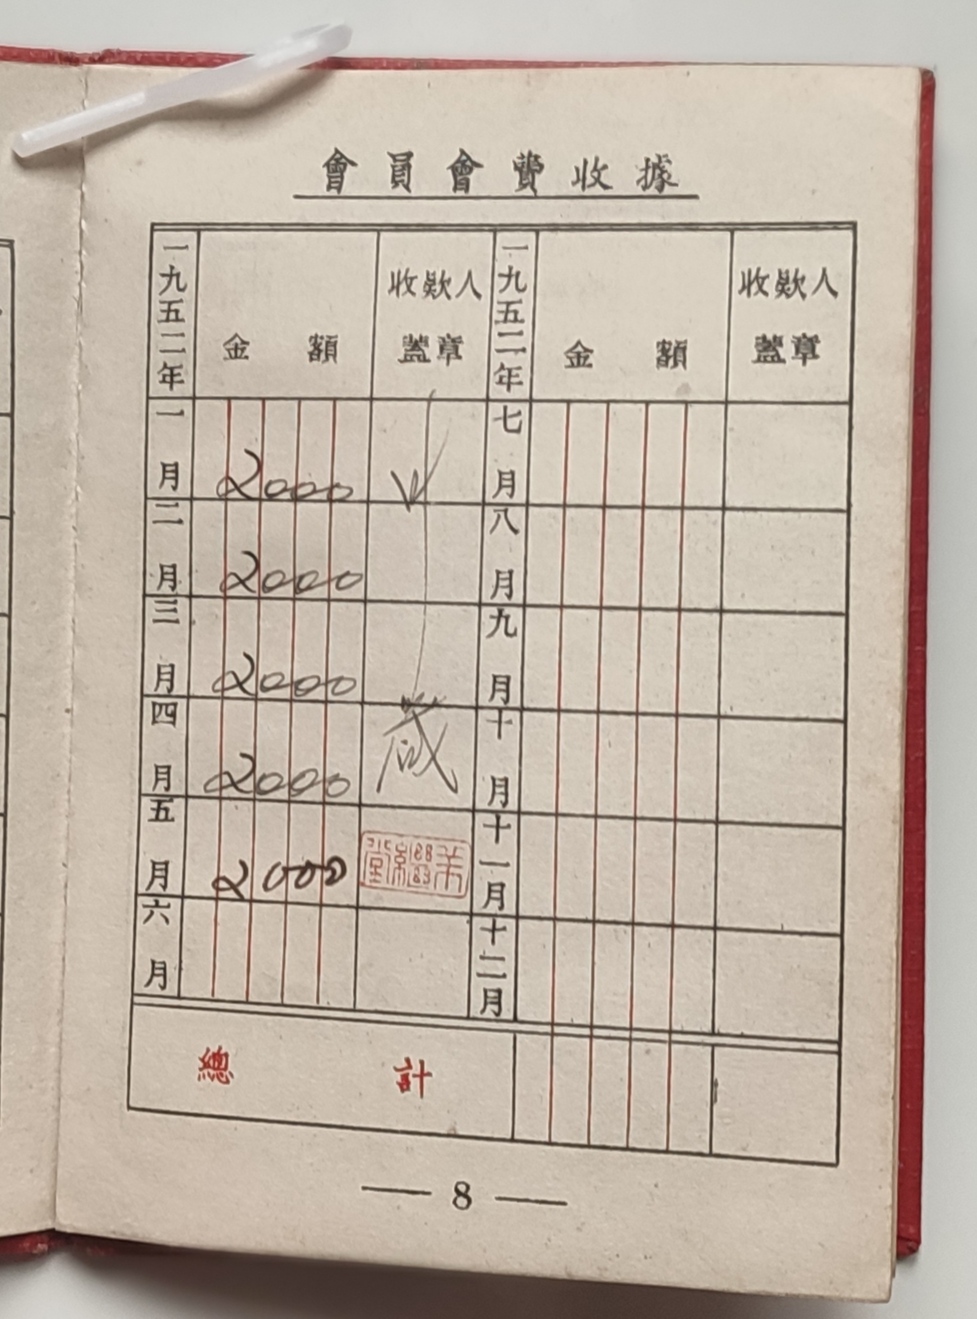 會員會費收據
一九五二年 金額 收欵人蓋章 一九五二年 金額 收欵人蓋章
一月 2000 七月
二月 2000 八月
三月 2000 九月
四月 2000 十月
五月 2000 十一月
六月 十二月
總計
— 8 —